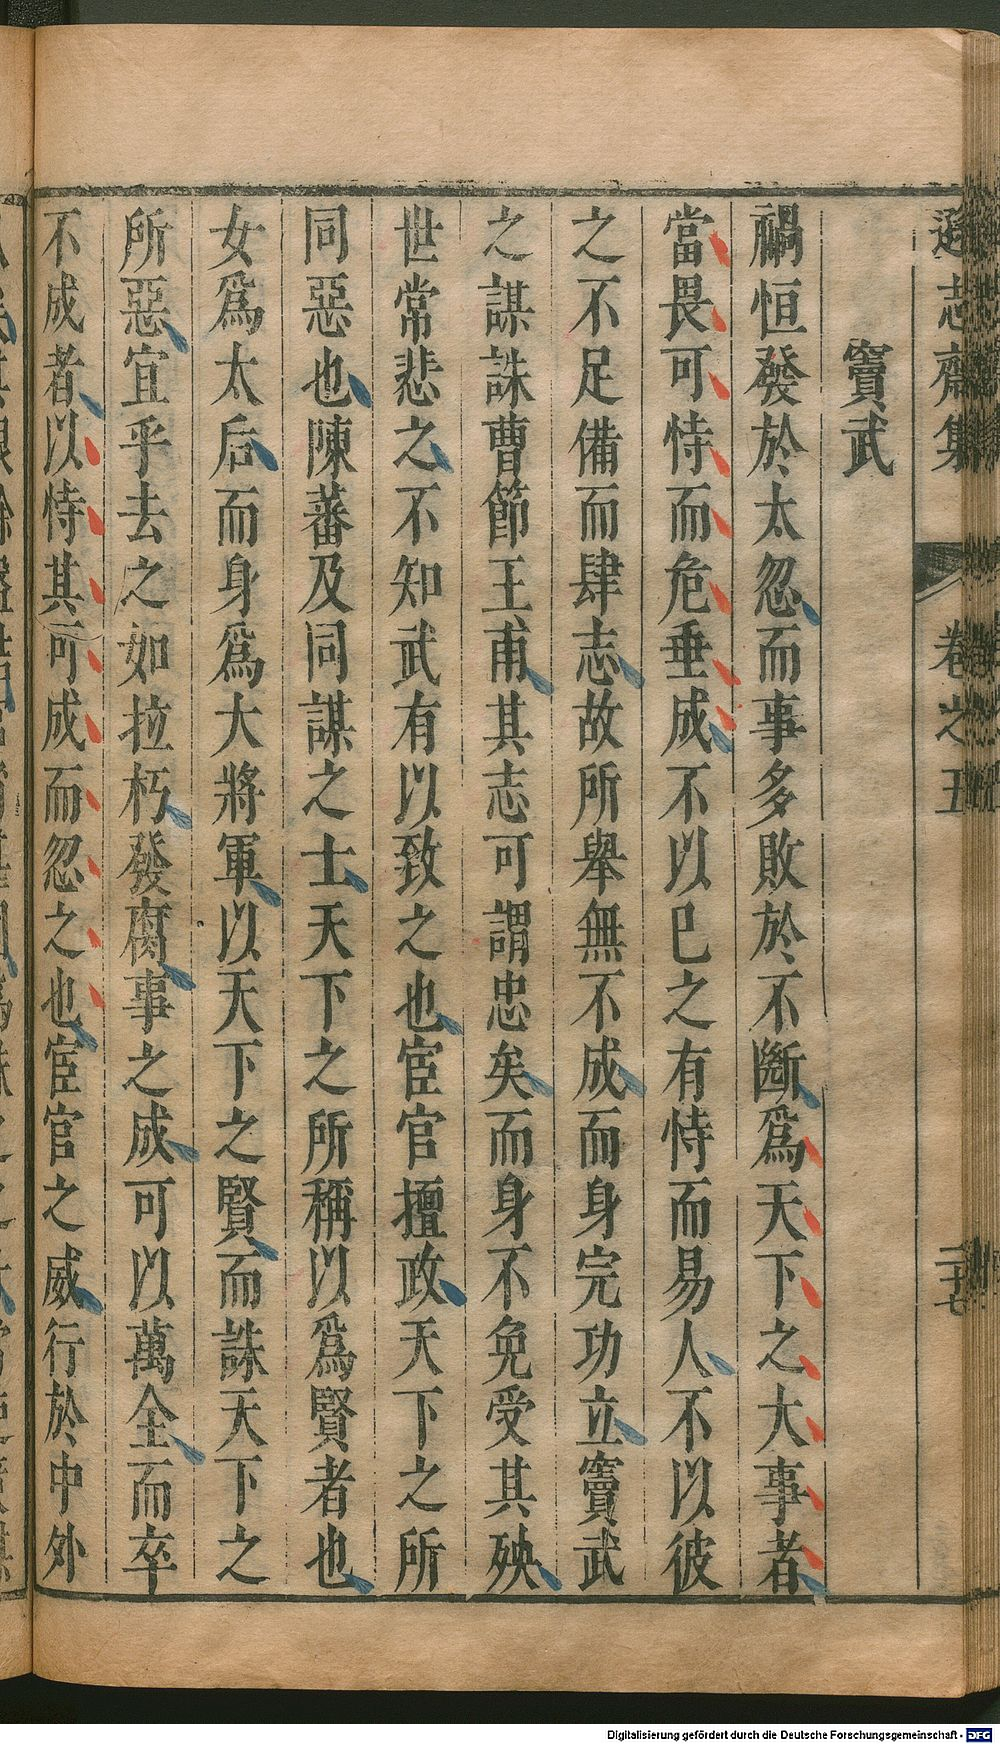 遜志齋集 卷之五 二十七
竇武
禍恒發於太忽而事多敗於不斷爲天下之大事者
當畏可恃而危垂成不以已之有恃而易人不以彼
之不足備而肆志故所舉無不成而身完功立竇武
之謀誅曹節王甫其志可謂忠矣而身不免受其殃
世常悲之不知武有以致之也宦官擅政天下之所
同惡也陳蕃及同謀之士天下之所稱以爲賢者也
女爲太后而身爲大將軍以天下之賢而誅天下之
所惡宜乎去之如拉朽發腐事之成可以萬全而卒
不成者以恃其可成而忽之也宦官之威行於中外
Digitalisierung gefördert durch die Deutsche Forschungsgemeinschaft - DFG